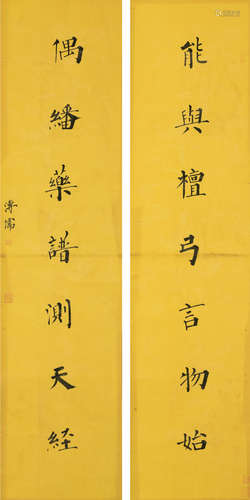 能與檀弓言物始
偶繙藥譜測天經
溥儒